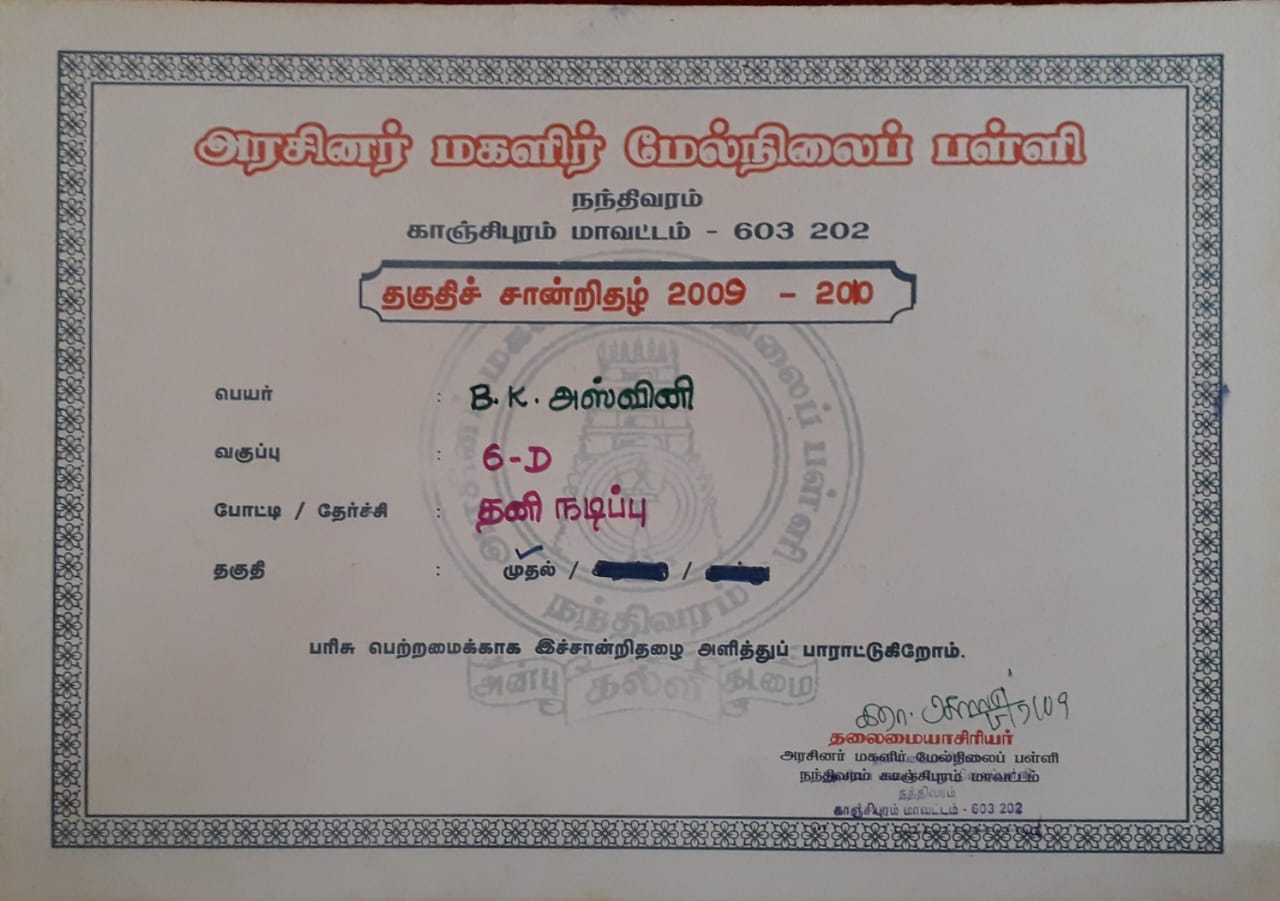 அரசினர் மகளிர் மேல்நிலைப் பள்ளி
நந்திவரம்
காஞ்சிபுரம் மாவட்டம் - 603 202
தகுதிச் சான்றிதழ் 2009 - 2010
பெயர் : B.K. அஸ்வினி
வகுப்பு : 6-D
போட்டி / தேர்ச்சி : தனி நடிப்பு
தகுதி : முதல் / /
நந்திவரம்
பரிசு பெற்றமைக்காக இச்சான்றிதழை அளித்துப் பாராட்டுகிறோம்.
அன்பு கல்வி கடமை
தலைமையாசிரியர்
அரசினர் மகளிர் மேல்நிலைப் பள்ளி
நந்திவரம் காஞ்சிபுரம் மாவட்டம்
நந்திவரம்
காஞ்சிபுரம் மாவட்டம் - 603 202